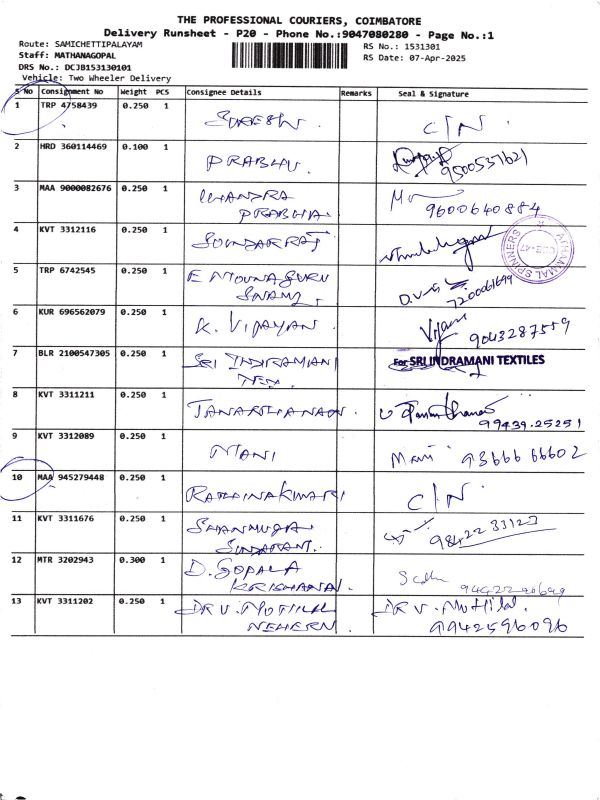 THE PROFESSIONAL COURIERS, COIMBATORE
Delivery Runsheet - P20 - Phone No.:9047080280 - Page No.:1
Route: SAMICHETTIPALAYAM
RS No.: 1531301
Staff: MATHANAGOPAL
RS Date: 07-Apr-2025
DRS No.: DCJB153130101
Vehicle: Two Wheeler Delivery
S No Consignment No Weight PCS Consignee Details Remarks Seal & Signature
1 TRP 4758439 0.250 1 SURESH. C/N
2 HRD 360114469 0.100 1 PRABHU.
9500537621
3 MAA 9000082676 0.250 1 CHANDRA
PRABHA. 9600640884
4 KVT 3312116 0.250 1 SUNDARRAJ
ATHAMMAL SPINNERS
5 TRP 6742545 0.250 1 E MOUNA GURU
SWAMY. 7200061699
6 KUR 696562079 0.250 1 K. VIJAYAN. Vijayan 9043287559
7 BLR 2100547305 0.250 1 SRI INDIRAMANI For SRI INDRAMANI TEXTILES
TEX.
8 KVT 3311211 0.250 1 JANARTHANAN.
99439.25251
9 KVT 3312089 0.250 1 MANI Mani 93666 66602
10 MAA 945279448 0.250 1 RATHINAKUMARI C/N.
11 KVT 3311676 0.250 1 SHANMUGA 98422 33123
SUNDARAM.
12 MTR 3202943 0.300 1 D. GOPALA
KRISHANA.
13 KVT 3311202 0.250 1 DR V. MOTILAL DR V. Motilal.
NEHERU. 9942596096